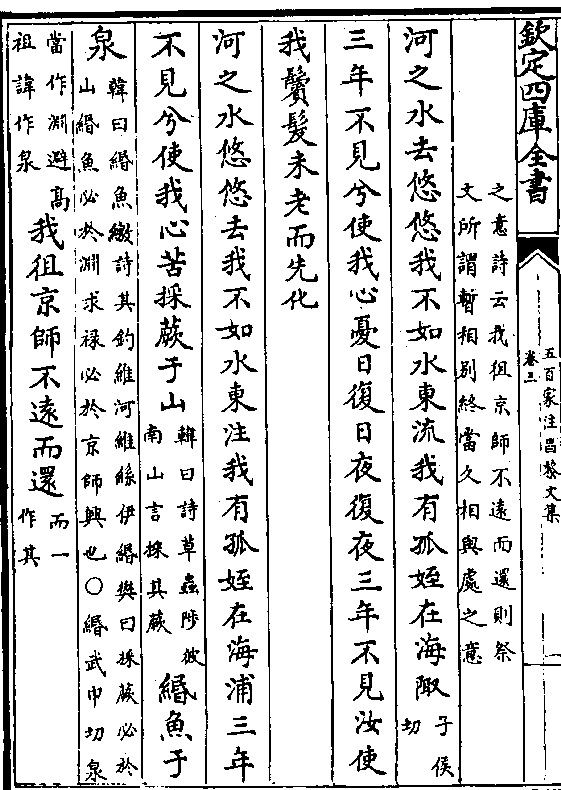 欽定四庫全書
五百家注昌黎文集
卷三
之意詩云我徂京師不遠而還則祭
文所謂暫相別終當久相與處之意
河之水去悠悠我不如水東流我有孤姪在海陬子侯
切
三年不見兮使我心憂日復日夜復夜三年不見汝使
我鬢髮未老而先化
河之水悠悠去我不如水東注我有孤姪在海浦三年
不見兮使我心苦採蕨于山韓曰詩草蟲陟彼
南山言採其蕨緡魚于
泉韓曰緡魚繳詩其釣維河維絲伊緡樊曰採蕨必於
山緡魚必於淵求祿必於京師興也○緡武巾切泉
當作淵避高
祖諱作泉我徂京師不遠而還而一
作其